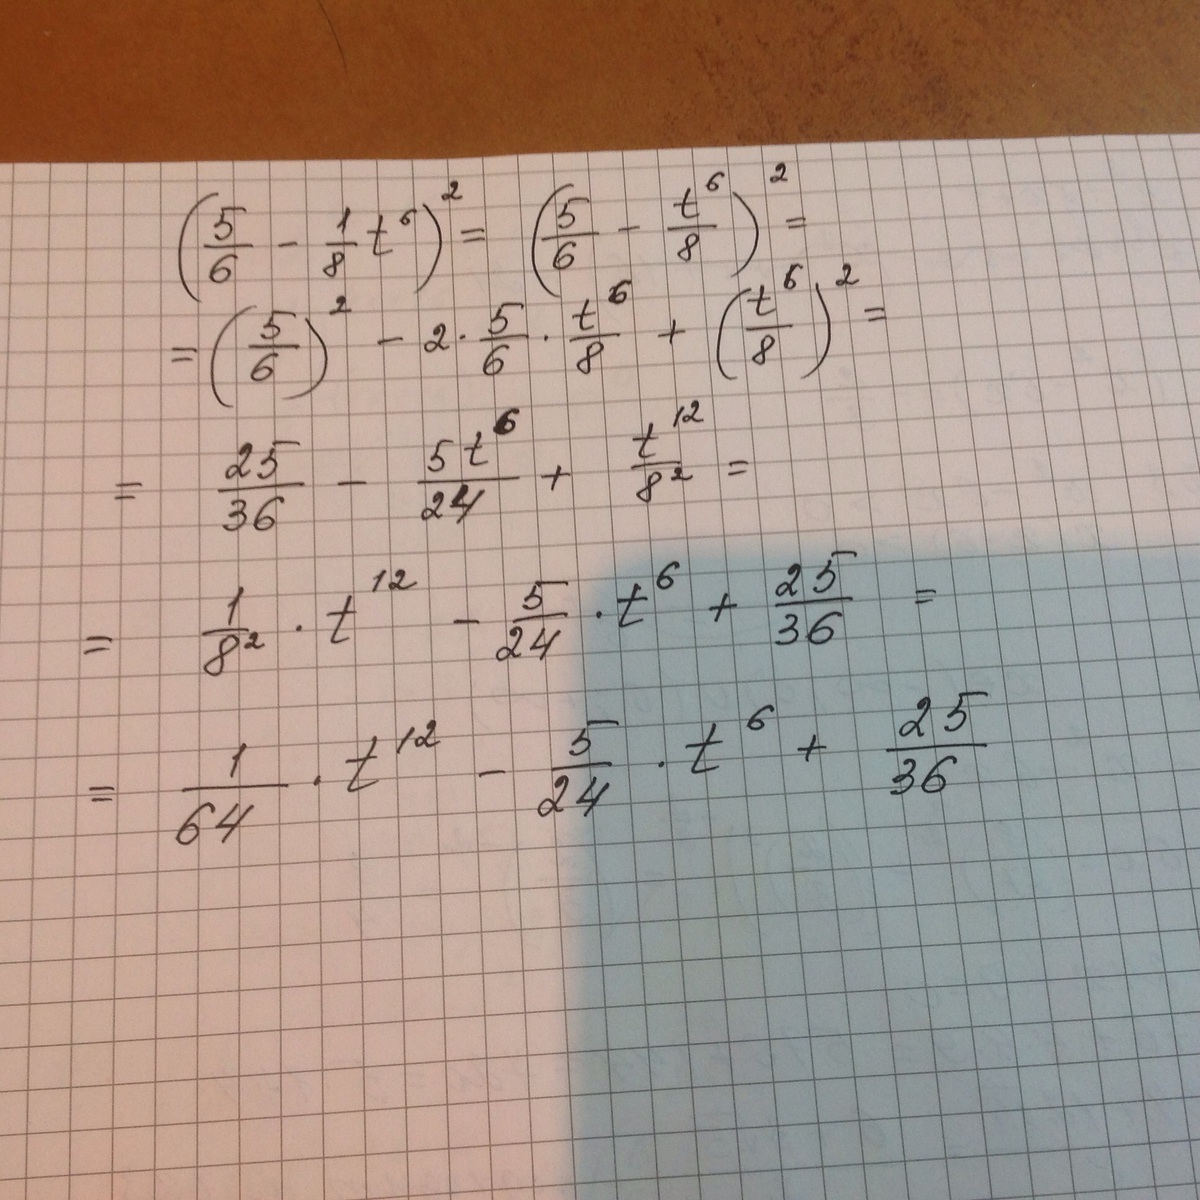 (5/6 - 1/8 t⁶)² = (5/6 - t⁶/8)² =
= (5/6)² - 2 · 5/6 · t⁶/8 + (t⁶/8)² =
= 25/36 - 5t⁶/24 + t¹²/8² =
= 1/8² · t¹² - 5/24 · t⁶ + 25/36 =
= 1/64 · t¹² - 5/24 · t⁶ + 25/36